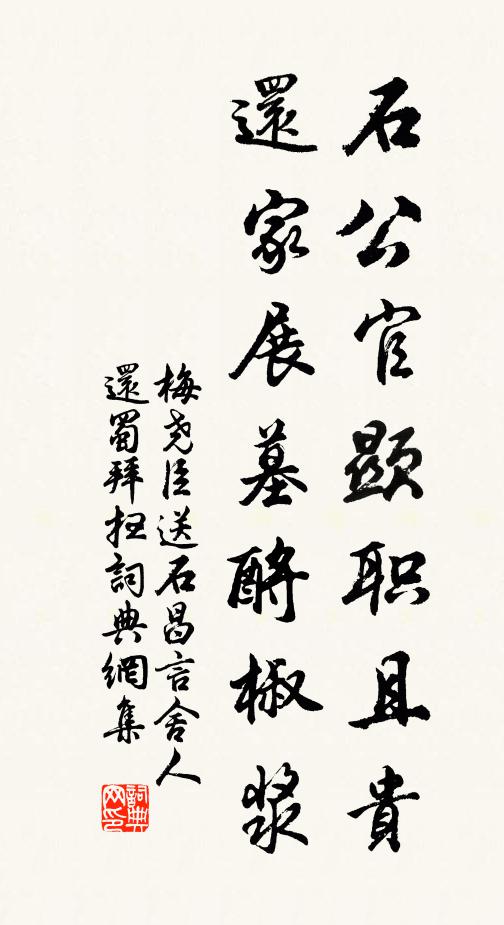 石公官顯职且貴
還家展墓酹椒漿
梅尧臣送石昌言舍人
還蜀拜掃詞典網集
詞典
网印